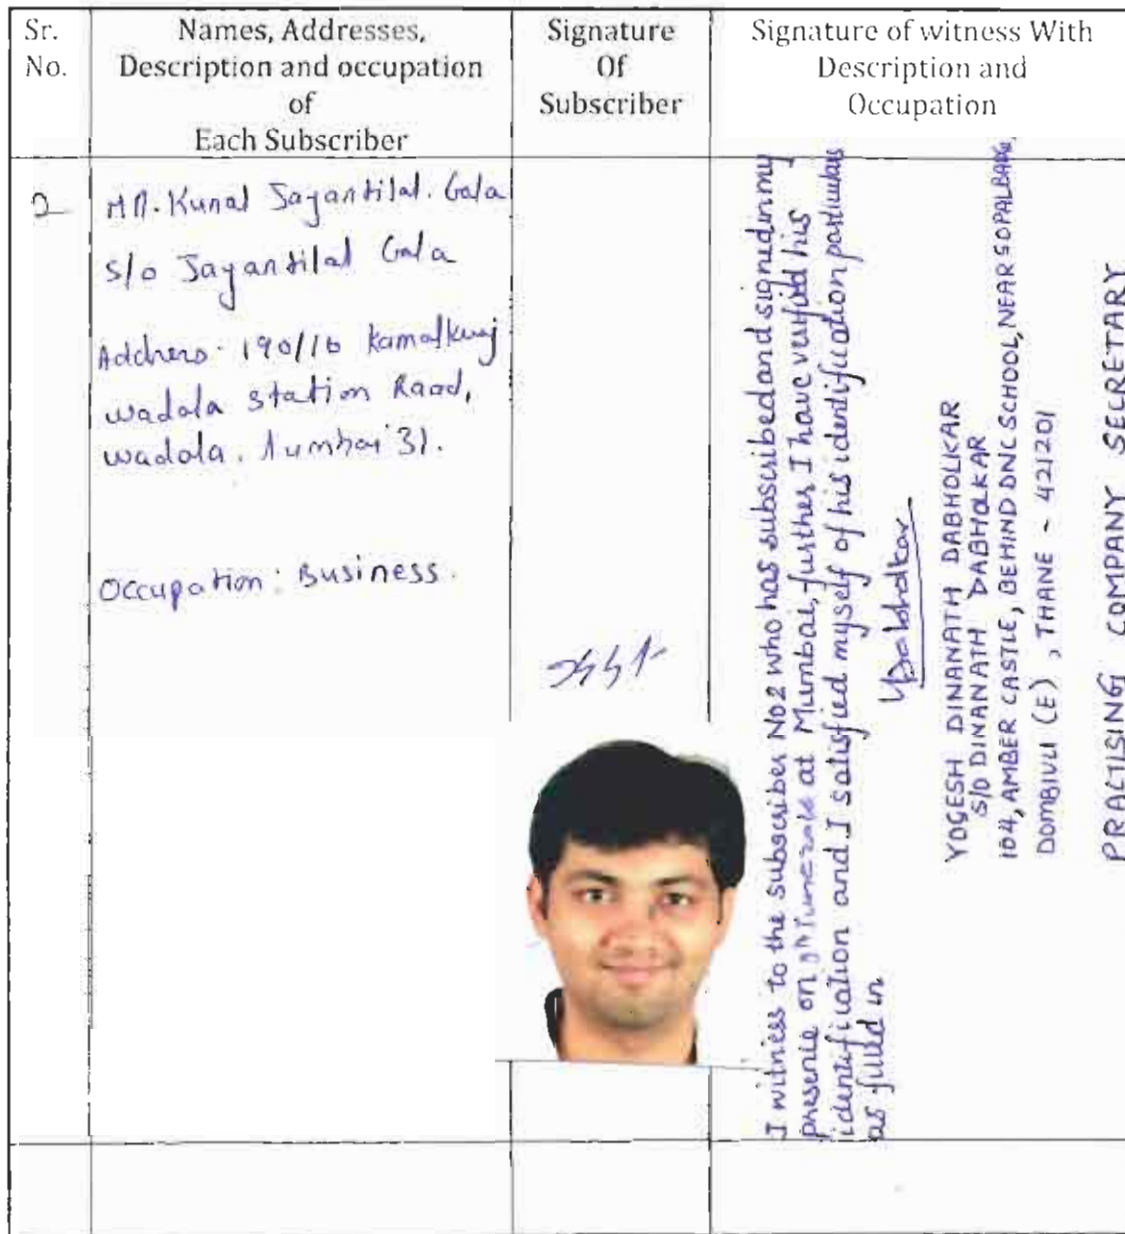 Sr.
No.
Names, Addresses,
Description and occupation
of
Each Subscriber
Signature
Of
Subscriber
Signature of witness With
Description and
Occupation
2
MR. Kunal Jayantilal. Gala
s/o Jayantilal Gala
Address- 190/16 Kamalkunj
wadala station Road,
wadala, Mumbai 31.
Occupation: Business.
I witness to the subscriber No2 who has subscribed and signed in my
presence on at Mumbai, further I have verified his
identification and I satisfied myself of his identification particulars
as filled in
YDabholkar
YOGESH DINANATH DABHOLKAR
S/O DINANATH DABHOLKAR
104, AMBER CASTLE, BEHIND DNC SCHOOL, NEAR GOPALBAUG,
DOMBIVLI (E), THANE - 421201
PRACTISING COMPANY SECRETARY